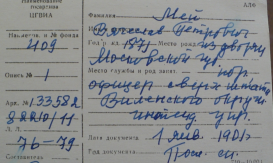 Наименование
госархива
ЦГВИА
Название, № фонда
409
Опись № 1
Арх. 133582
Л. Л.
76-79
Составитель
АЛФ
Фамилия Мей
Вячеслав Петрович
Год р. кл 1871 Место из дворян
Московской губ.
Место службы и род занят. кор.
офицер сверх штата
Виленского окружн
интенд. упр.
Дата документа 1 янв. 1901 г
Вид документа Посл. сп.